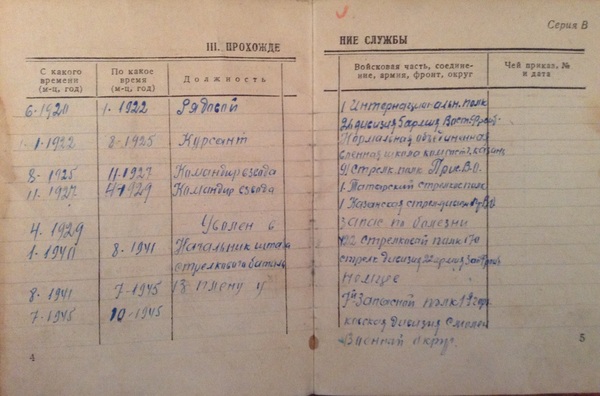 Серия В
III. ПРОХОЖДЕ
НИЕ СЛУЖБЫ
С какого времени (м-ц, год)
По какое время (м-ц, год)
Должность
Войсковая часть, соедине-
ние, армия, фронт, округ
Чей приказ, №
и дата
6-1920 1-1922 Рядовой 1 Интернациональн. полк
26 дивизия 5 армия
1-1922 8-1925 Курсант Нормальная объединенная
школа
8-1925 11-1927 Командир взвода стрелк. полк При.В.О.
11-1927 4-1929 Командир взвода 1 Татарский стрелк. полк
1 Казанская
4.1929 Уволен в запас по болезни
1-1940 8-1941 Начальник штаба стрелковый полк 170
стрелкового баталь стрелк дивизия 22 армия Зап
8-1941 7-1945 В плену у немцев
7-1945 10-1945 Запасной полк
дивизия
Военный округ.
4
5